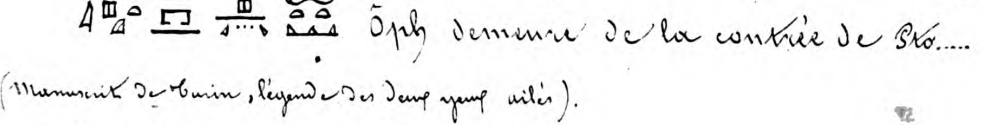 Ôph demeure de la contrée de Pto.....
(Manuscrit de Turin, légende des deux yeux ailés).